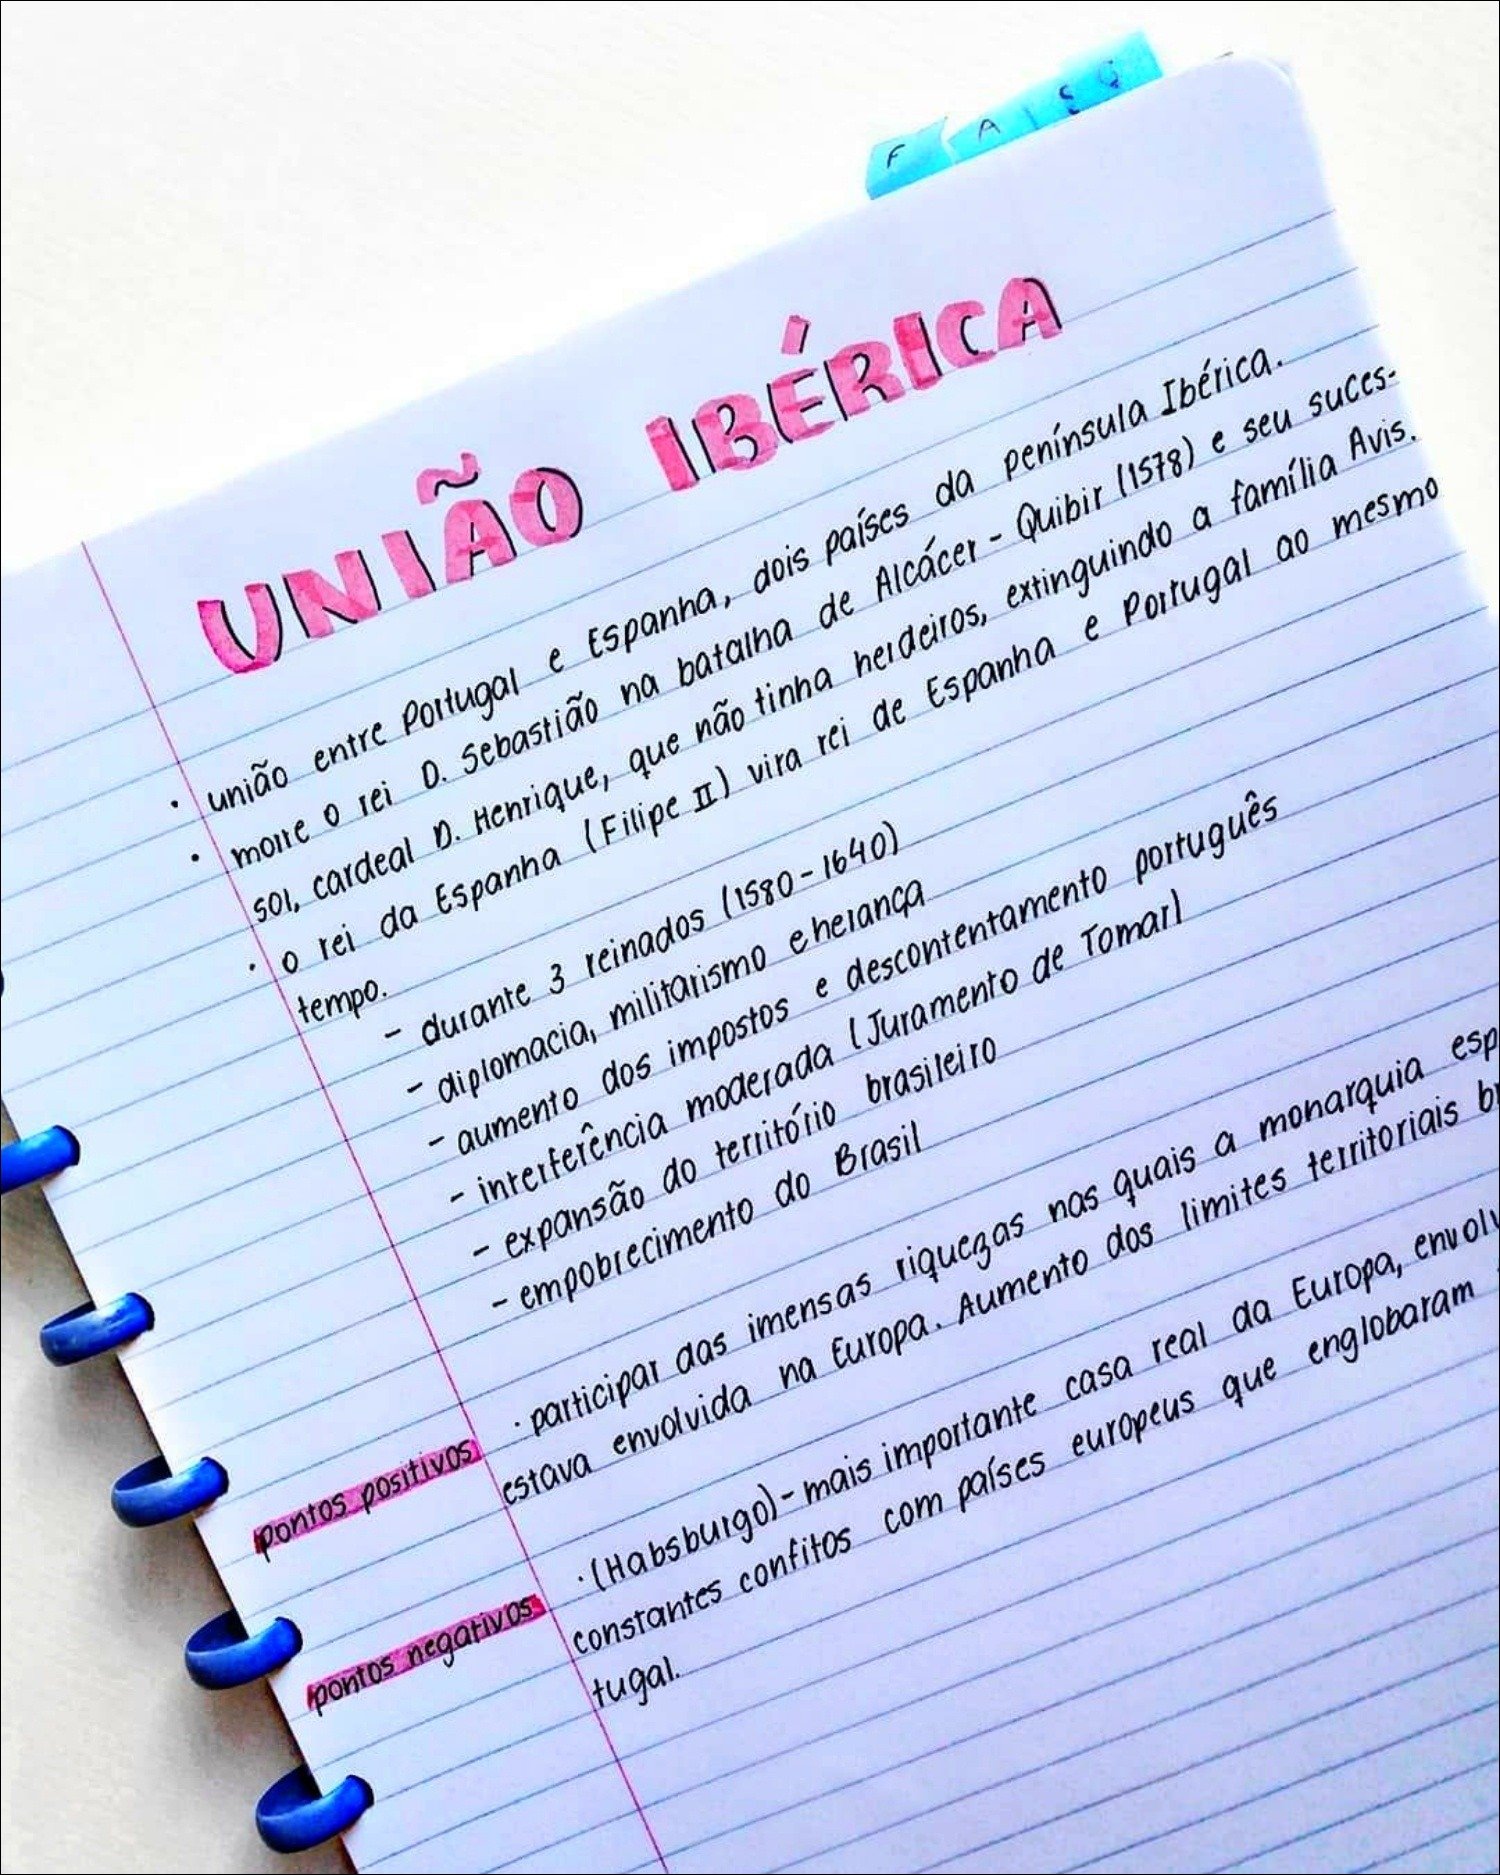 F A E
UNIÃO IBÉRICA
• união entre Portugal e Espanha, dois países da península Ibérica.
• morre o rei D. Sebastião na batalha de Alcácer-Quibir (1578) e seu suces-
sor, cardeal D. Henrique, que não tinha herdeiros, extinguindo a família Avis.
• o rei da Espanha (Filipe II) vira rei de Espanha e Portugal ao mesmo
tempo.
- durante 3 reinados (1580-1640)
- diplomacia, militarismo e herança
- aumento dos impostos e descontentamento português
- interferência moderada (Juramento de Tomar)
- expansão do território brasileiro
- empobrecimento do Brasil
pontos positivos · participar das imensas riquezas nas quais a monarquia esp
estava envolvida na Europa. Aumento dos limites territoriais br
pontos negativos · (Habsburgo)- mais importante casa real da Europa, envolv
constantes confitos com países europeus que englobaram
tugal.